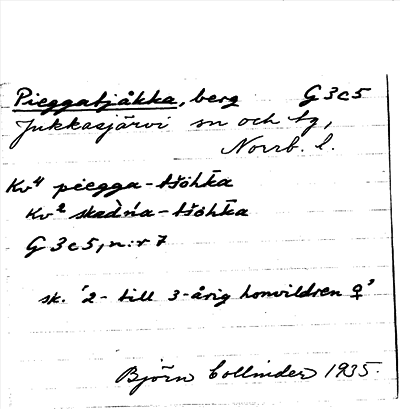 Pieggatjåkka, berg G3c5
Jukkasjärvi sn och tg,
Norrb. l.
Kv4 piegga-tšohka
Kv2 skadńa-tšohka
G3c5, n:r 7
sk. '2- till 3-årig honvildren ♀'
Björn Collinder 1935.